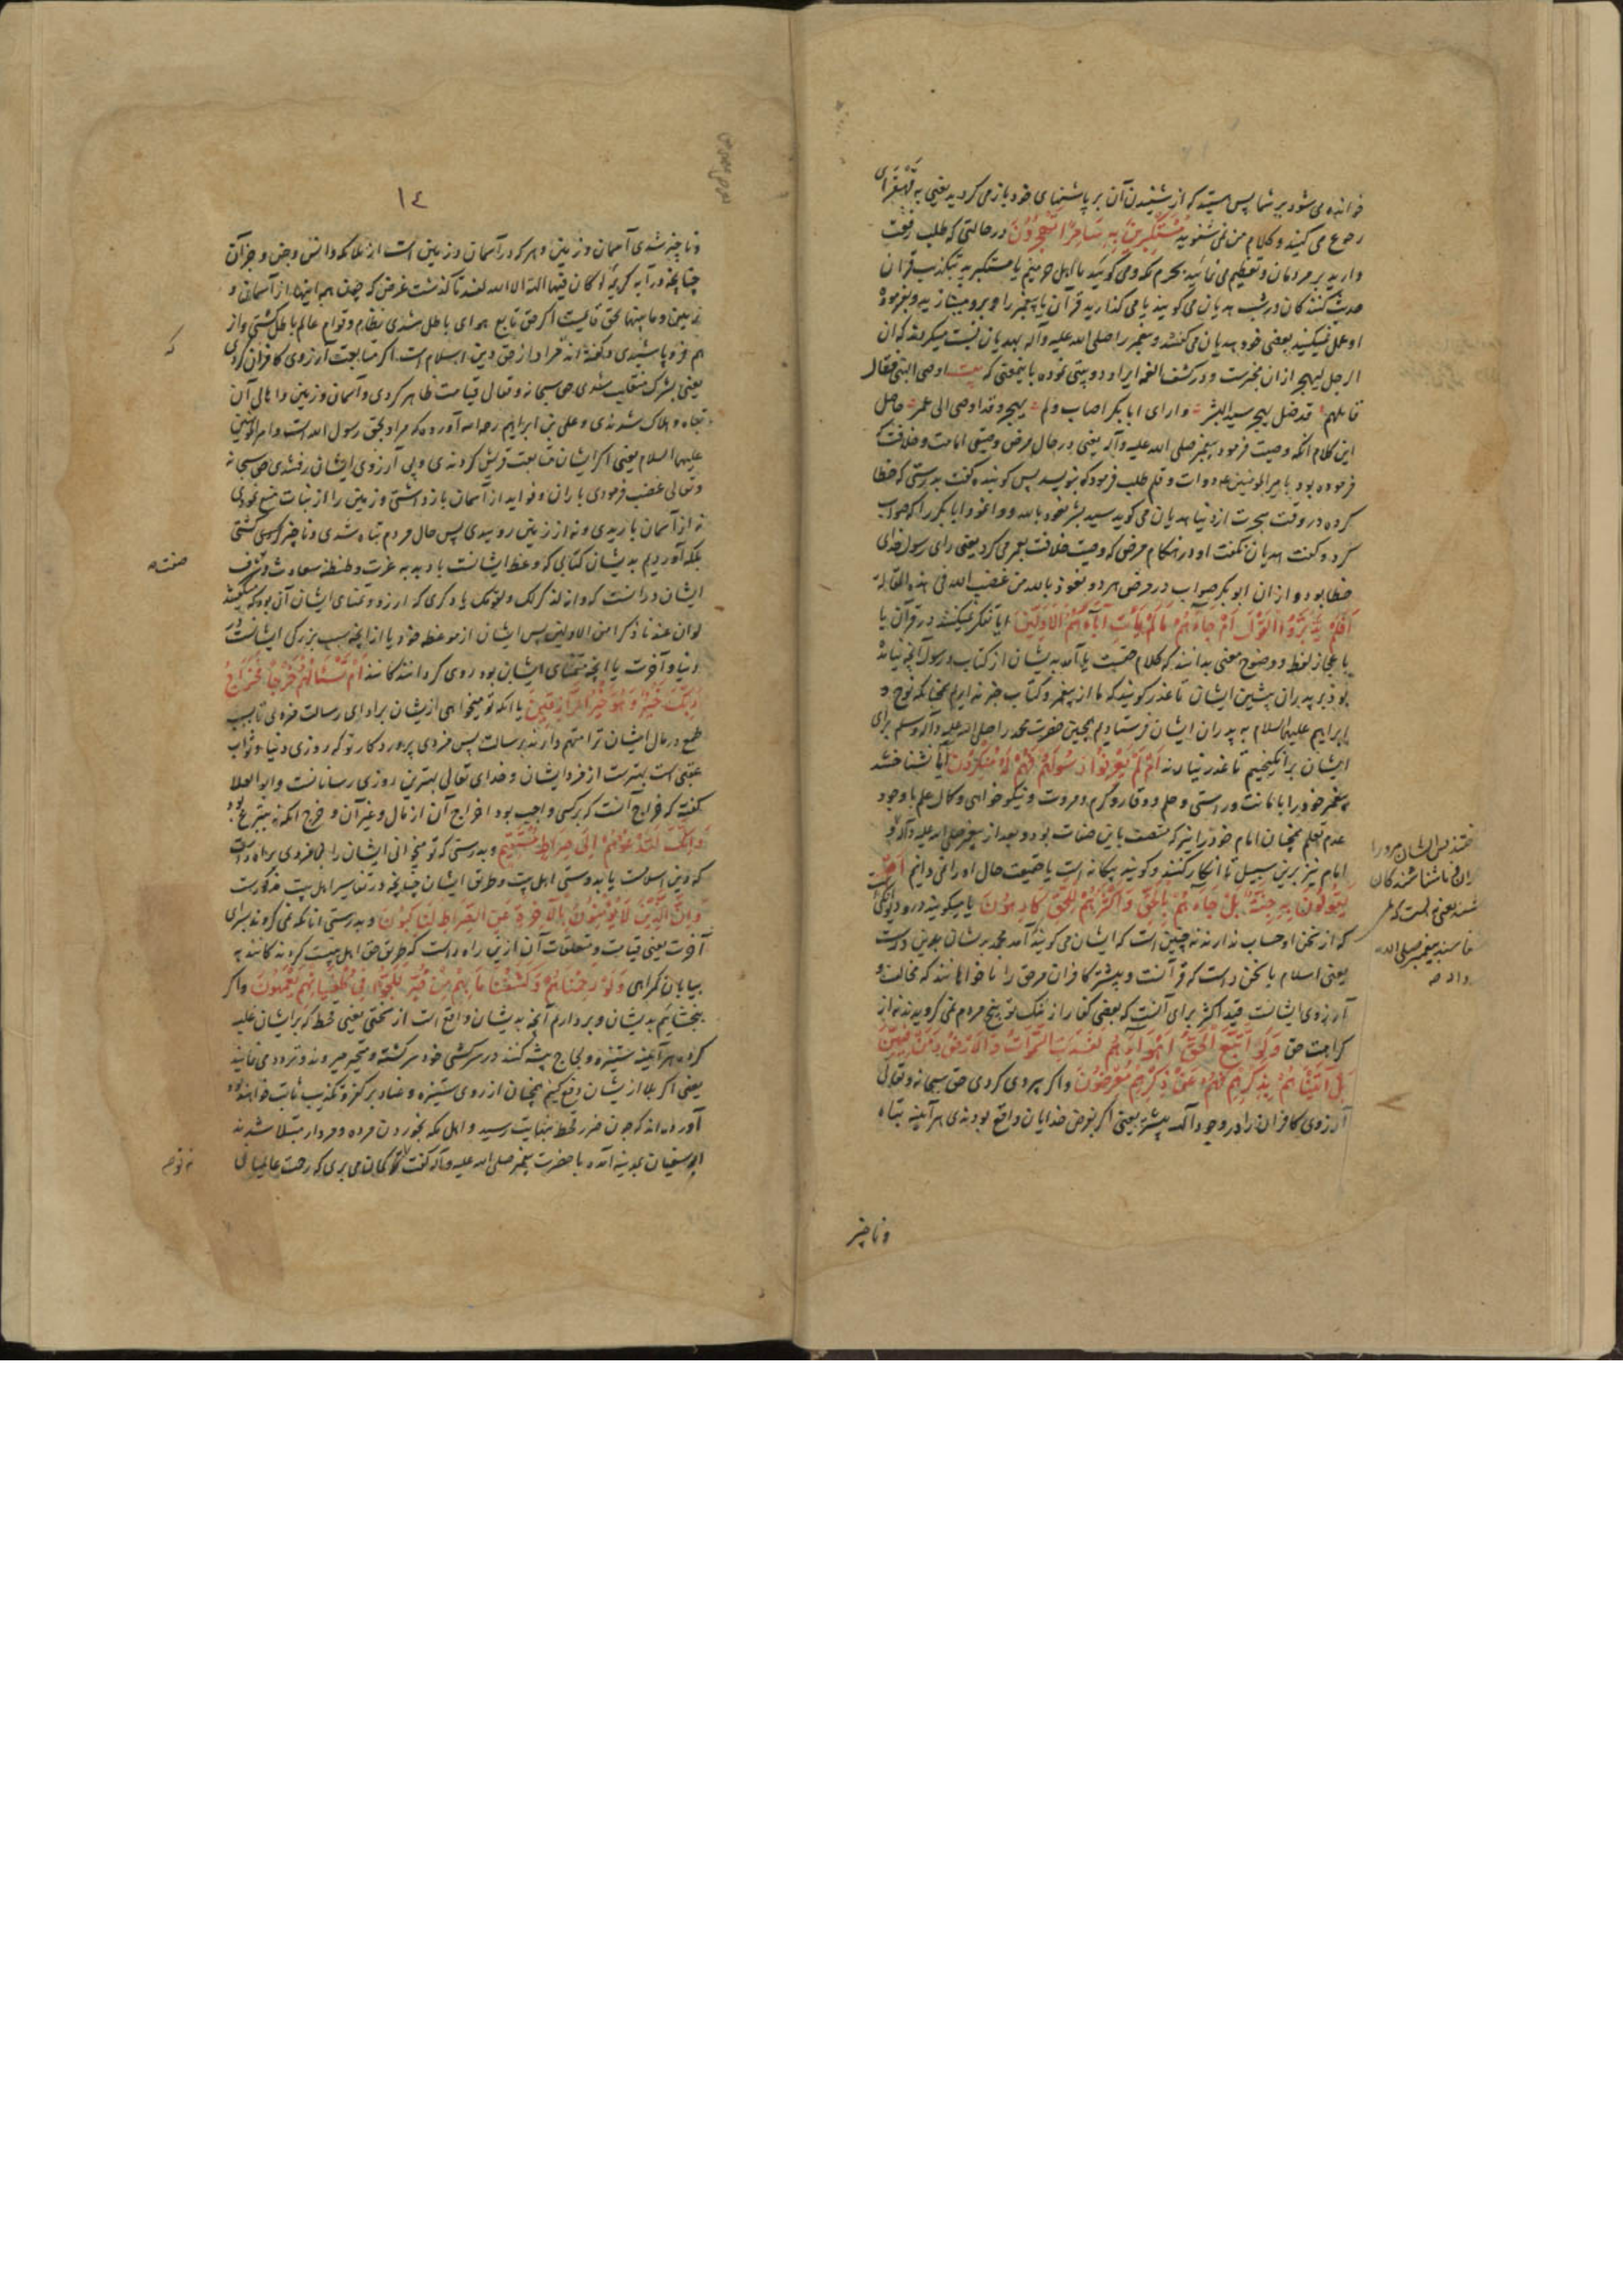 خوانده می شود بر شما پس هستید که از شنیدن آن بر پاشنهای خود باز می کردید یعنی به قهقرای
رجوع می کنید و کلام من نمی شنوید مُسْتَکْبِرینَ بِهِ سَامِرًا تَهْجُرُونَ در حالتی که طلب رفعت
دارید بر مردمان و تعظیم می نمائید بحرم مکه و می کوئید ما اهل حرمیم یا مستکبر به تکذیب قرآن
حدیث کنندکان در شب هذیان می کویید یا می کذارید قرآن یا پیغمبر را
او عمل نمیکنید بعضی خود هذیان می کفتند و پیغمبر را صلی الله علیه وآله بهذیان نسبت میکردند که ان
الرجل لیهجر از ان مخبرست و در کشف الغمه ایراد دو بیتی نموده باینمعنی که بیت اوصی النبی فقال
قائلهم قد ضل یهجر سید البشر و ارای ابا بکر اصاب ولم یهجر و قد اوصی الی عمر حاصل
این کلام انکه وصیت فرمود پیغمبر صلی الله علیه وآله یعنی در حال مرض وصیتی امامت و خلافت که
فرموده بود بامیر المومنین و دوات و قلم طلب فرمود که بنویسد پس کوینده کفت بدرستی که خطا
کرده در وقت هجرت از دنیا هذیان می کوید سید بشر نعوذ بالله و ابا بکر را که صواب
کرد و کفت هذیان نکفت او در هنکام مرض که وصیت خلافت بعمر می کرد یعنی رای رسول خدای
خطا بود و از ان ابو بکر صواب در مرض هر دو نعوذ بالله من غضب الله فی هذه المقابله
اَفَلَمْ یَدَّبَّرُوا الْقَوْلَ اَمْ جَاءَهُمْ مَا لَمْ یَأْتِ آبَاءَهُمُ الْاَوَّلینَ ایا تفکر نمیکنند در قرآن یا
باعجاز لفظ و وضوح معنی بدانند که کلام حقست یا آمد بدیشان از کتاب و رسول آنچه نیامده
بود بر پدران پیشین ایشان تا عذر کویند که ما از پیغمبر و کتاب خبر نداریم بلکه نوح و
ابراهیم علیهما السلام به پدران ایشان فرستادیم همچنین حضرت محمد را صلی الله علیه وآله وسلم برای
ایشان برانکیختیم تا عذر نیارند اَمْ لَمْ یَعْرِفُوا رَسُولَهُمْ فَهُمْ لَهُ مُنْکِرُونَ آیا نشناختند
پیغمبر خود را بامانت و راستی و حلم و وقار و کرم و مروت و نیکو خواهی و کمال علم با وجود
عدم تعلم همچنان امام خود را نیز که متصف باین صفات بود و بعد از پیغمبر صلی الله علیه وآله
امام نیز برین سبیل تا انکار کنند و کویند بیکانه است یا حقیقت حال او را نمی دانیم اَمْ
یَقُولُونَ بِهِ جِنَّةٌ بَلْ جَاءَهُمْ بِالْحَقِّ وَاَکْثَرُهُمْ لِلْحَقِّ کَارِهُونَ یا میکویند درو دیوانکی است
که از سخن او حساب ندارند نه چنین است که ایشان می کویند آمد محمد بدیشان بدین راست
یعنی اسلام یا سخن راست که قرآنست و بیشتر کافران مر حق را ناخواهانند که مخالف
آرزوی ایشانست قید اکثر برای آنست که بعضی کفار از ننک توبیخ مردم نمی کرویدند نه از
کراهت حق وَلَوِ اتَّبَعَ الْحَقُّ اَهْوَاءَهُمْ لَفَسَدَتِ السَّمٰوَاتُ وَالْاَرْضُ وَمَنْ فِیهِنَّ
بَلْ اَتَیْنَاهُمْ بِذِکْرِهِمْ فَهُمْ عَنْ ذِکْرِهِمْ مُعْرِضُونَ و اکر پیروی کردی حق سبحانه وتعالی
آرزوی کافران را در وجود آلهه بیشتر یعنی اکر بفرض خدایان واقع بودندی هر آینه تباه
و ناچیز
١٤
و ناچیز شدی آسمان و زمین و هر که در آسمان و زمین است از ملائکه و انس و جن و جز آن
چنانچه در آیه کریمه لو کان فیهما الهة الا الله لفسدتا کذشت غرض که چون همه اینها از آسمان و
زمین و ما بینهما بحق قائمست اکر حق تابع هوای باطل شدی نظام و قوام عالم باطل کشتی و از
هم فرو پاشیدی و کفته اند مراد از حق دین اسلام است اکر متابعت آرزوی کافران کردی
یعنی بشرک منقلب شدی حق سبحانه وتعالی قیامت ظاهر کردی و آسمان و زمین و اهالی آن
تباه و هلاک شدندی و علی بن ابراهیم رحمه الله آورده که مراد بحق رسول الله است و امیر المؤمنین
علیهما السلام یعنی اکر ایشان متابعت قریش کردندی و پی آرزوی ایشان رفتندی حق سبحانه
وتعالی غضب فرمودی باران و فواید از آسمان باز داشتی و زمین را از نبات منع نمودی
نه از آسمان باریدی و نه از زمین روییدی پس حال مردم تباه شدی و ناچیز کشتی
بلکه آوردیم بدیشان کتابی که وعظ ایشانست
ایشان در انست که و انه لذکر لک ولقومک یا ذکری که ارزو و تمنای ایشان آن بود که میکفتند
لو ان عندنا ذکرا من الاولین پس ایشان از موعظه خود یا از آنچه سبب بزرکی ایشانست در
دنیا و آخرت یا آنچه متمنای ایشان بود روی کردانندکانند اَمْ تَسْئَلُهُمْ خَرْجًا فَخَرَاجُ
رَبِّکَ خَیْرٌ وَهُوَ خَیْرُ الرَّازِقِینَ یا انکه تو میخواهی از یشان بر ادای رسالت مزدی تا بسبب
طمع در مال ایشان ترا متهم دارند برسالت پس مزدی پروردکار تو که روزی دنیا و ثواب
عقبی است بهترست از مزد ایشان و خدای تعالی بهترین روزی رسانانست و ابو العلا
کفته که خراج آنست که بر کسی واجب بود اخراج آن از مال و غیر آن و خرج انکه به تبرع بود
وَاِنَّکَ لَتَدْعُوهُمْ اِلٰی صِرَاطٍ مُسْتَقِیمٍ و بدرستی که تو میخوانی ایشان را براه راست
که دین اسلامست یا بدوستی اهل بیت و طریق ایشان چنانچه در تفاسیر اهل بیت مذکورست
وَاِنَّ الَّذِینَ لَا یُؤْمِنُونَ بِالْآخِرَةِ عَنِ الصِّرَاطِ لَنَاکِبُونَ و بدرستی انانکه نمی کروند بسرای
آخرت یعنی قیامت و متعلقات آن ازین راه راست که طریق حق اهل بیت
بیابان کمراهی وَلَوْ رَحِمْنَاهُمْ وَکَشَفْنَا مَا بِهِمْ مِنْ ضُرٍّ لَلَجُّوا فِی طُغْیَانِهِمْ یَعْمَهُونَ و اکر
ببخشائیم بدیشان و برداریم آنچه بدیشان واقع است از سختی یعنی قحط که بر ایشان غلبه
کرده هر آینه ستیزه و لجاج پیشه کنند در سرکشی خود سرکشته و متحیر میروند و تردد می نمایند
یعنی اکر بلا از یشان دفع کنیم همچنان از روی ستیزه و عناد بر کفر و تکذیب ثابت خواهند بود
آورده اند که چون ضرر قحط بنهایت رسید و اهل مکه بخوردن مرده و مردار مبتلا شدند
ابو سفیان بمدینه آمده با حضرت پیغمبر صلی الله علیه وآله کفت کمان می بری که رحمت عالمیانی